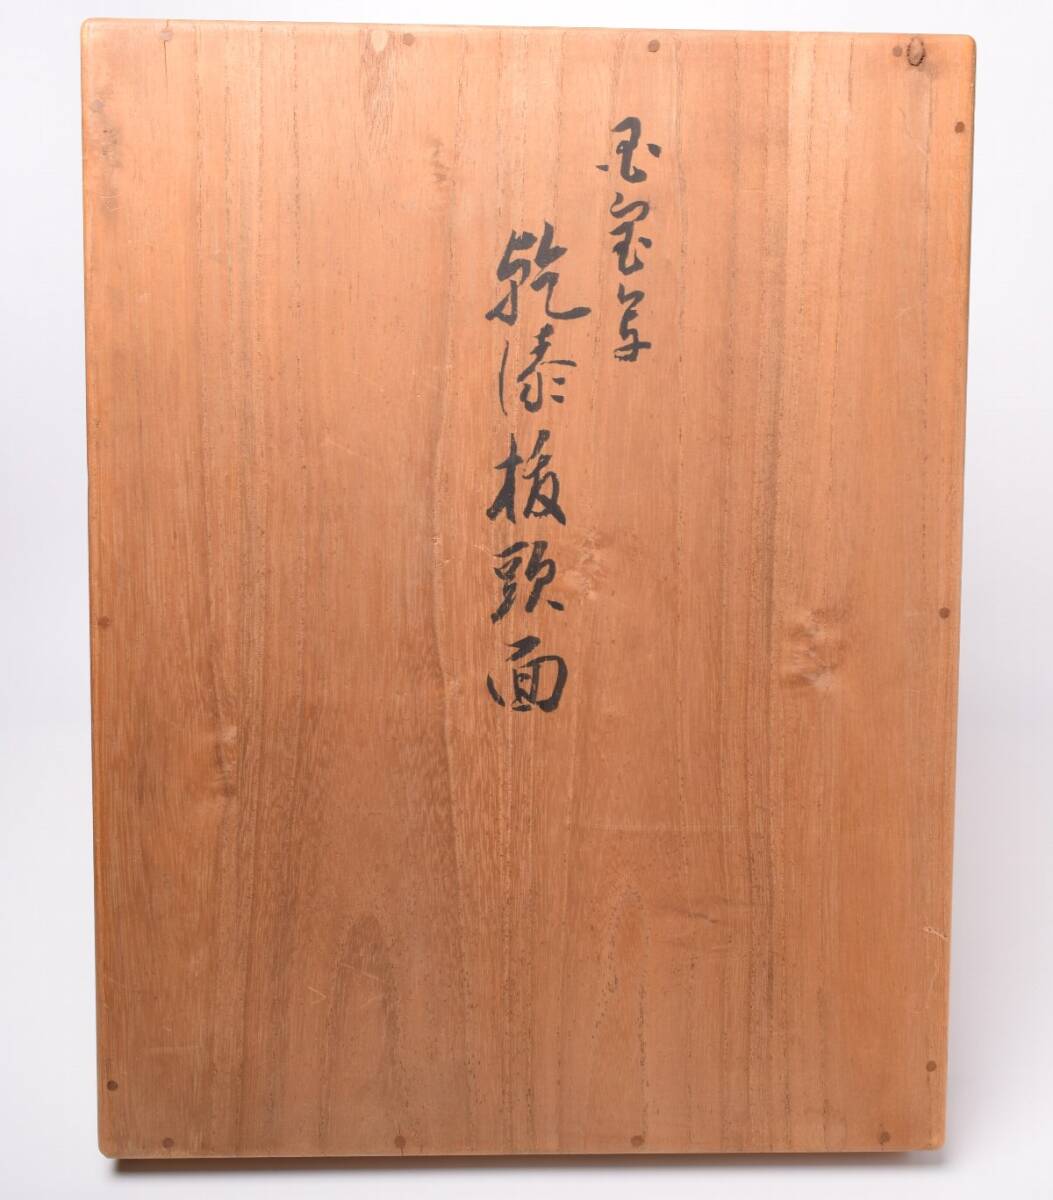 国宝写
乾漆抜頭面